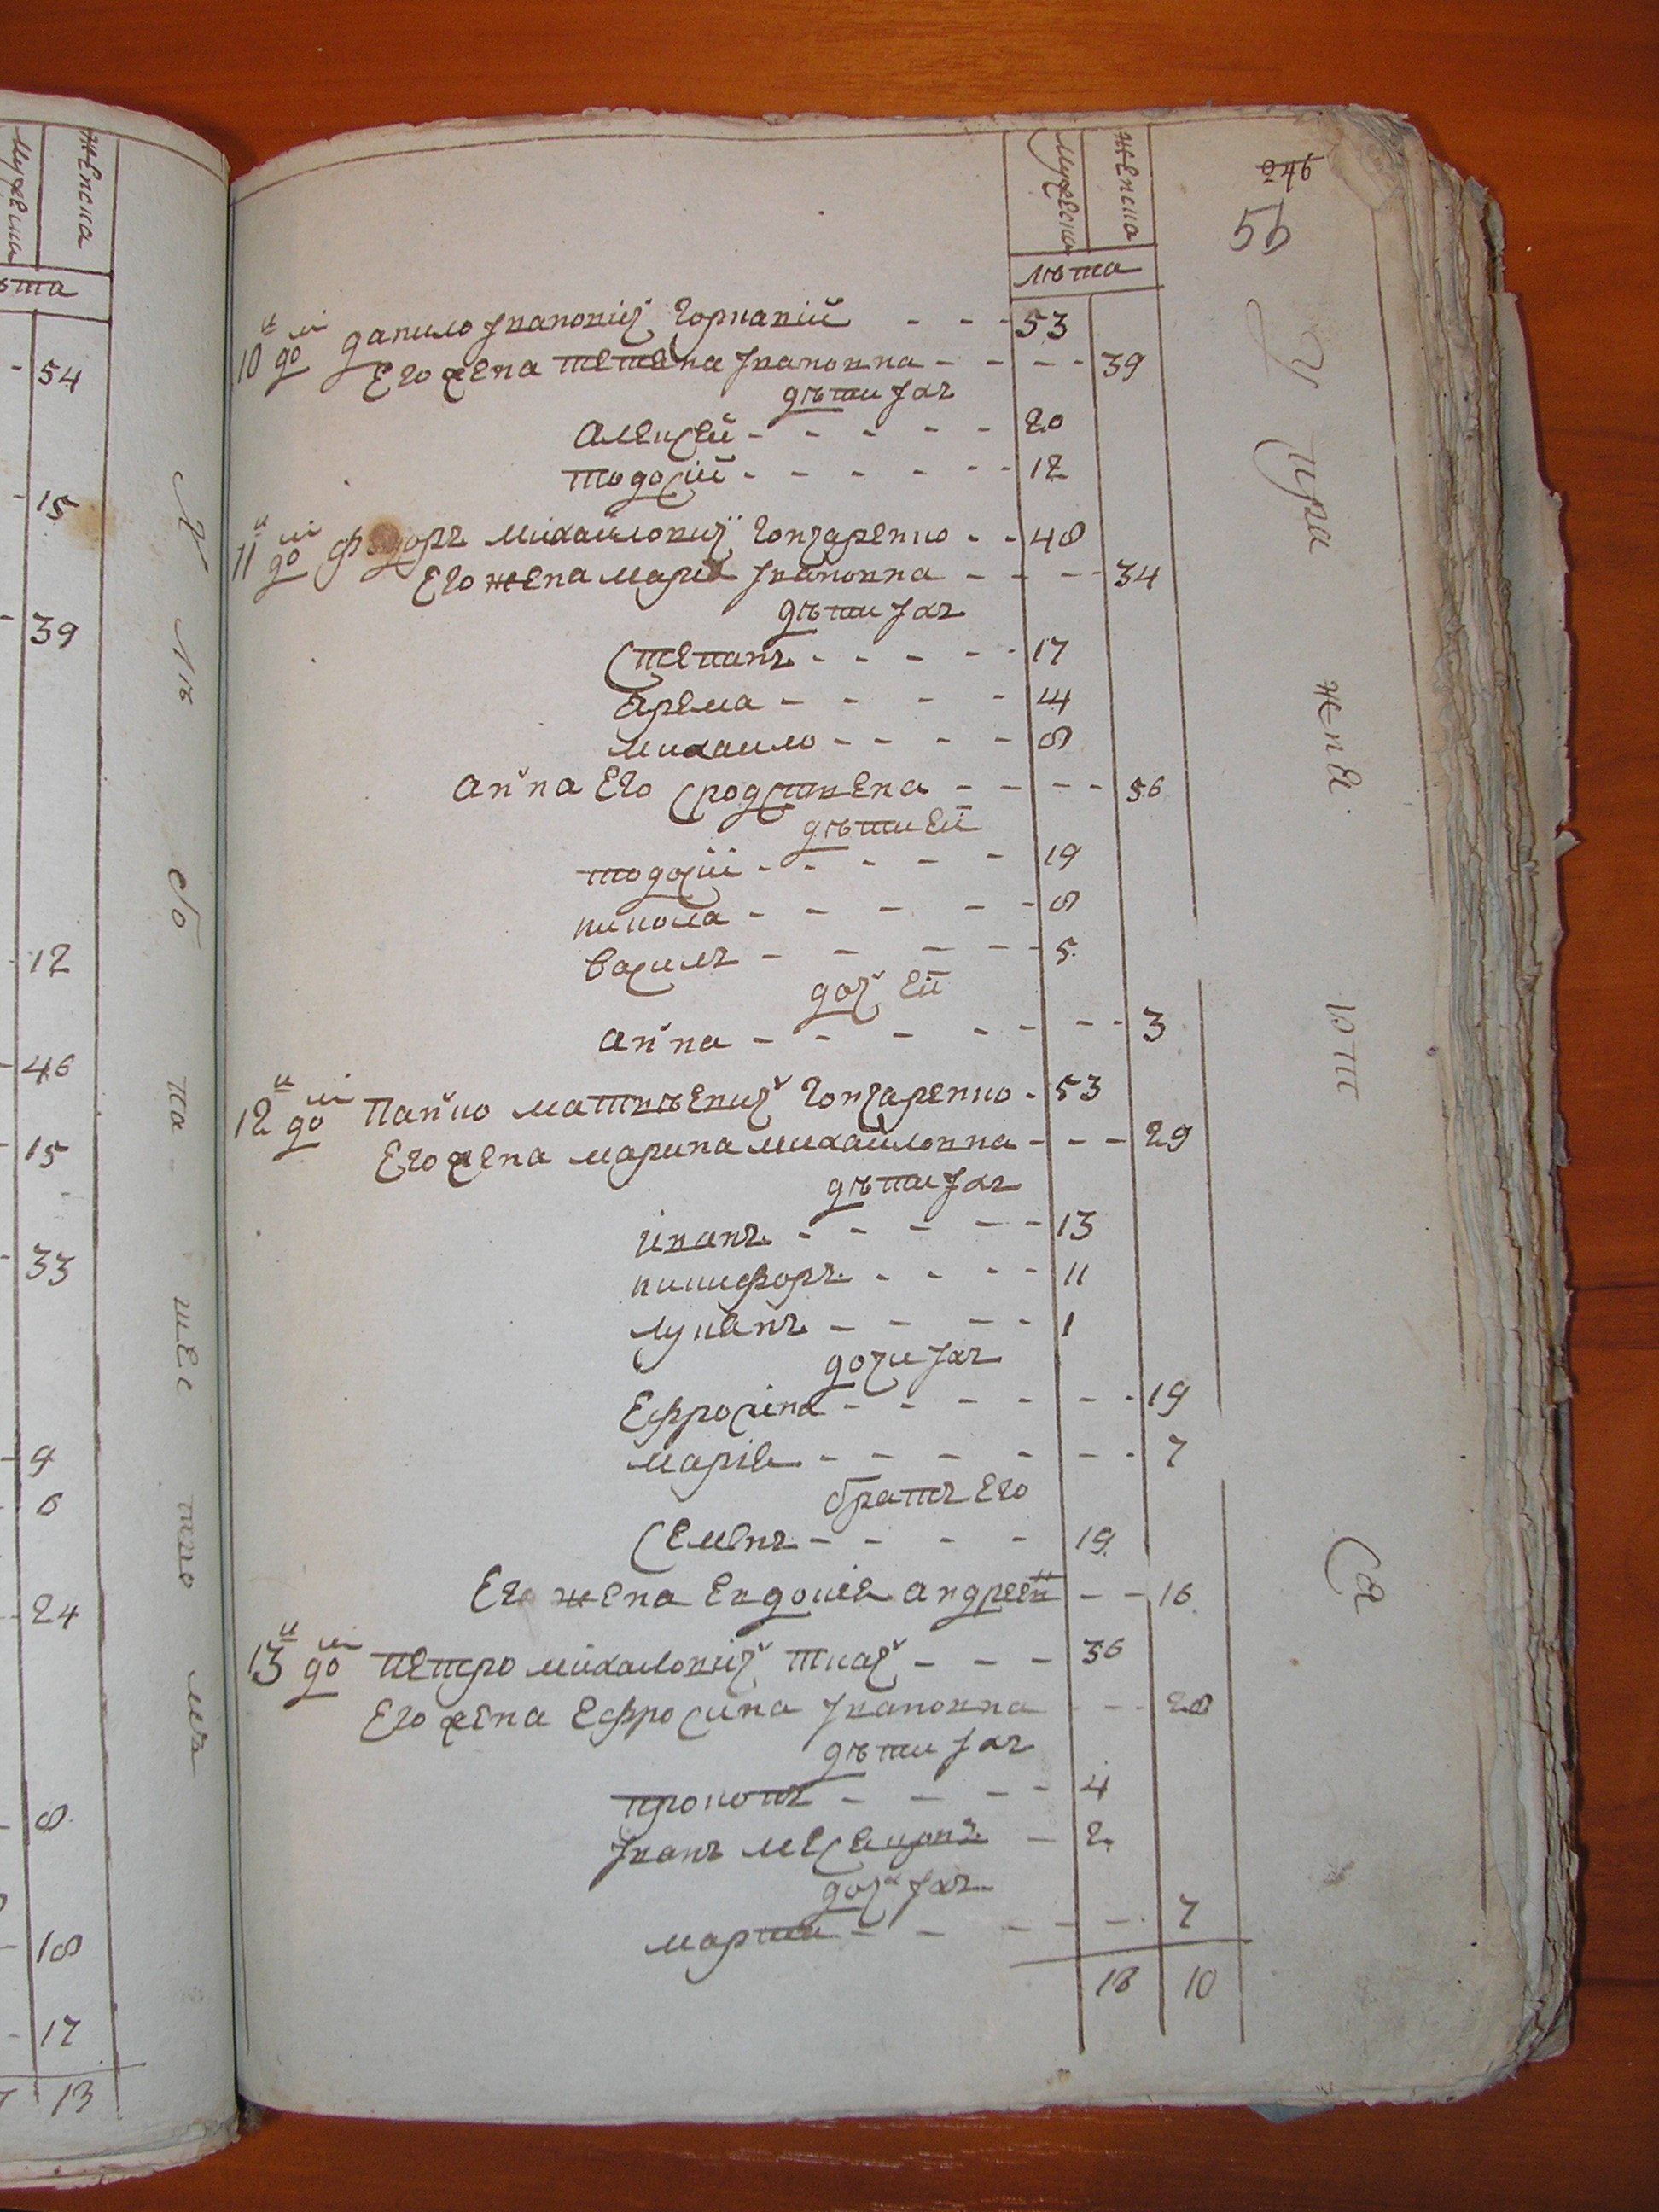 женска
мужеска
ѣта
54
15
39
12
46
15
33
9
6
24
8
18
17
13
246
56
мужеска
женска
лѣта
10й домъ Данило Ивановичъ Чорнавій - - - 53
Его жена Тетяна Ивановна - - - - 39
дѣти ихъ
Алеѯей - - - - - 20
Тодосій - - - - - - 12
11й домъ Федоръ Михайловичъ Гончаренко - - 48
Его жена Марія Ивановна - - - - 34
дѣти ихъ
Степанъ - - - - - 17
Ярема - - - - 14
Михаило - - - - 8
Анна Его сродствена - - - - 56
дѣти Ей
Тодосій - - - - - 19
Никола - - - - - 8
Василь - - - - - 5
дочъ Ей
Анна - - - - - - - 3
12й домъ Панко Матвѣевичъ Гончаренко - 53
Его жена Марина Михайловна - - - 29
дѣти ихъ
Иванъ - - - - - 13
Никифоръ - - - - 11
Лукянъ - - - - 1
дочи ихъ
Ефросина - - - - - - 19
Марія - - - - - - - 7
братъ Его
Семенъ - - - - 19
Его жена Евдокія Андреевн - - 16
13й домъ Петро Михаловичъ Ткачъ - - - 36
Его жена Ефросина Ивановна - - 28
дѣти ихъ
Прокопъ - - - - 4
Иванъ - 2
дочъ ихъ
Марта - - - - 7
18 10